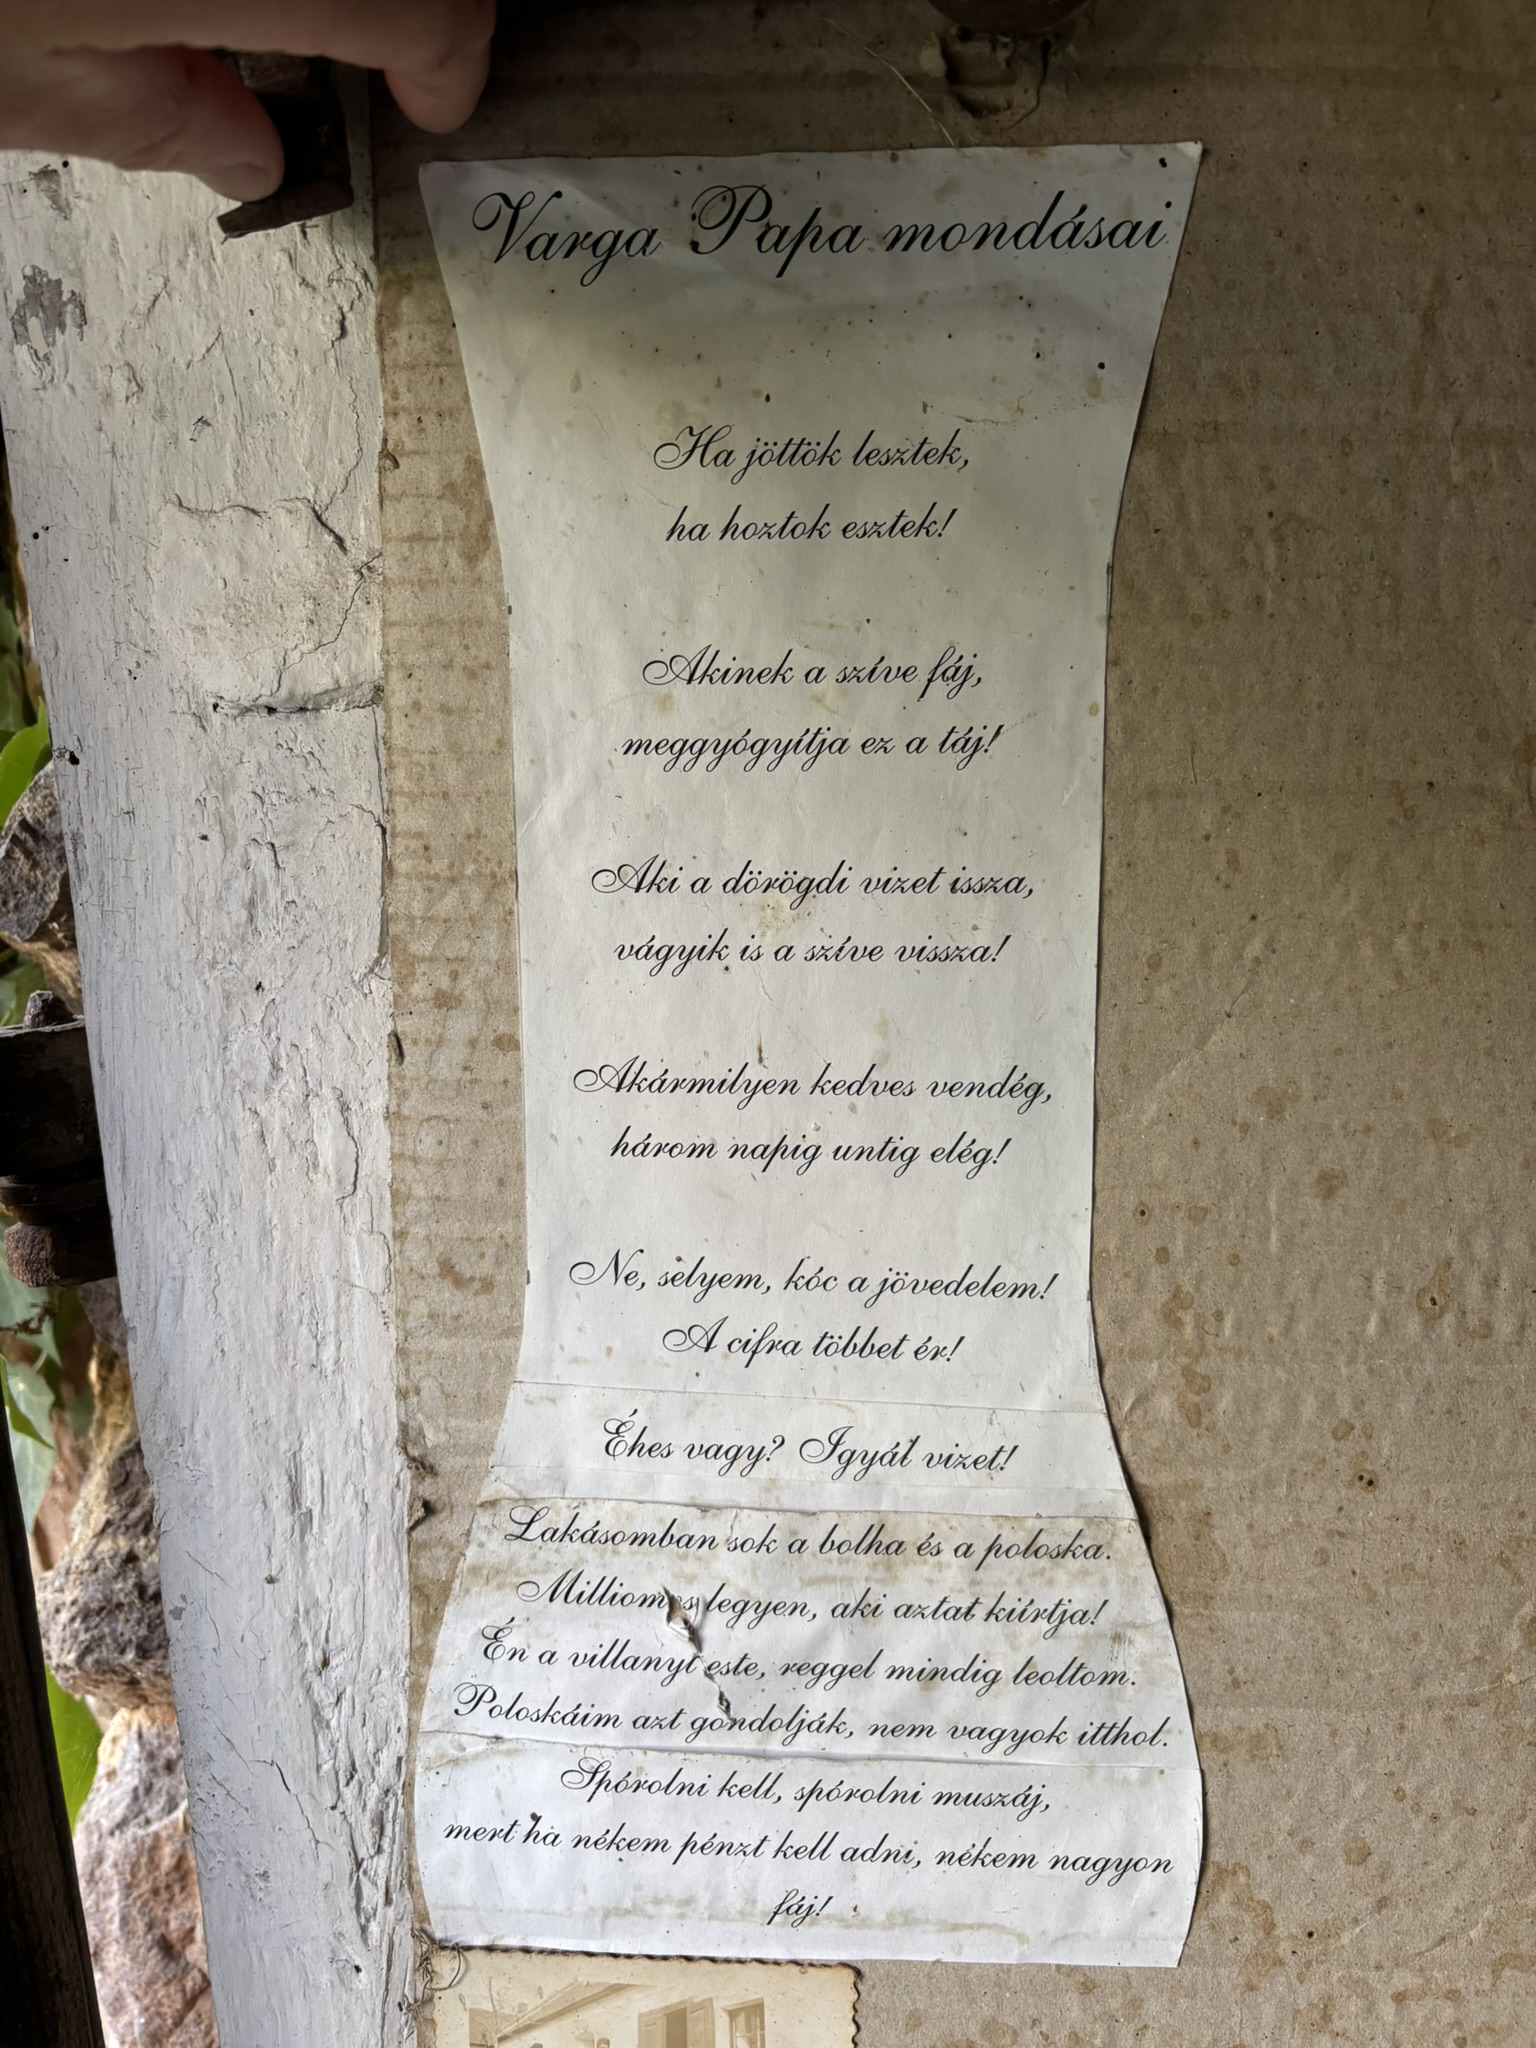 Varga Papa mondásai
Ha jöttök lesztek,
ha hoztok esztek!
Akinek a szíve fáj,
meggyógyítja ez a táj!
Aki a dörögdi vizet issza,
vágyik is a szíve vissza!
Akármilyen kedves vendég,
három napig untig elég!
Ne, selyem, kóc a jövedelem!
A cifra többet ér!
Éhes vagy? Igyál vizet!
Lakásomban sok a bolha és a poloska.
Milliomos legyen, aki aztat kiírtja!
Én a villanyt este, reggel mindig leoltom.
Poloskáim azt gondolják, nem vagyok itthol.
Spórolni kell, spórolni muszáj,
mert ha nékem pénzt kell adni, nékem nagyon
fáj!